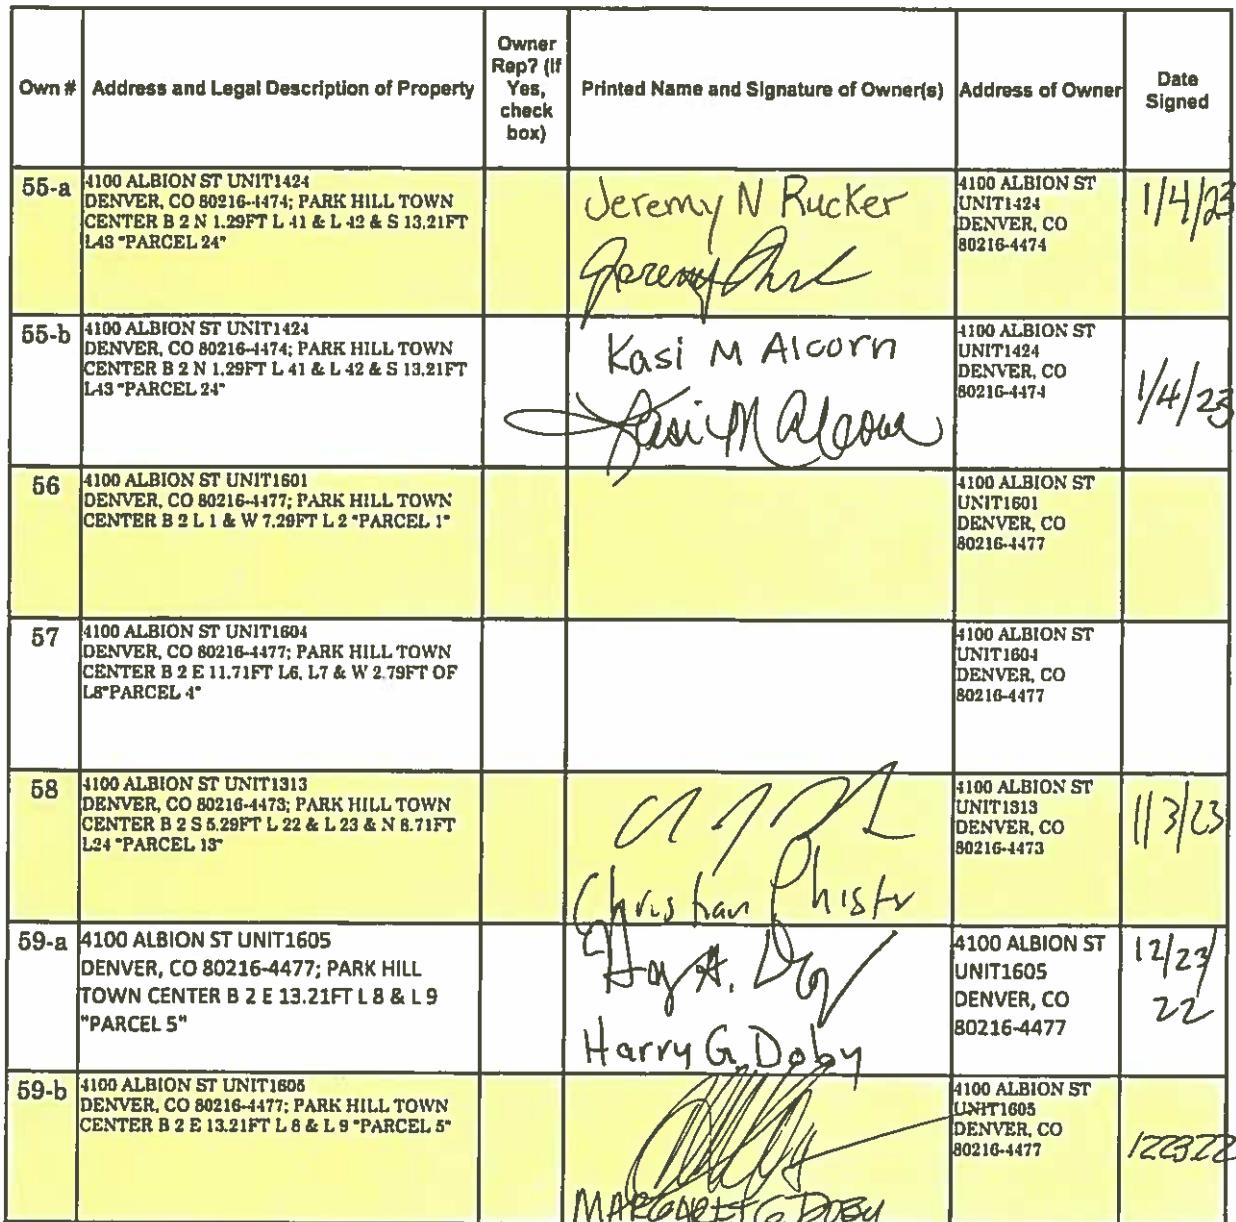 Own #
Address and Legal Description of Property
Owner
Rep? (If
Yes,
check
box)
Printed Name and Signature of Owner(s)
Address of Owner
Date
Signed
55-a
4100 ALBION ST UNIT1424
DENVER, CO 80216-4474; PARK HILL TOWN
CENTER B 2 N 1.29FT L 41 & L 42 & S 13.21FT
L43 "PARCEL 24"
Jeremy N Rucker
4100 ALBION ST
UNIT1424
DENVER, CO
80216-4474
1/4/23
55-b
4100 ALBION ST UNIT1424
DENVER, CO 80216-4474; PARK HILL TOWN
CENTER B 2 N 1.29FT L 41 & L 42 & S 13.21FT
L43 "PARCEL 24"
Kasi M Alcorn
Kasi M Alcorn
4100 ALBION ST
UNIT1424
DENVER, CO
80216-4474
1/4/23
56
4100 ALBION ST UNIT1601
DENVER, CO 80216-4477; PARK HILL TOWN
CENTER B 2 L 1 & W 7.29FT L 2 "PARCEL 1"
4100 ALBION ST
UNIT1601
DENVER, CO
80216-4477
57
4100 ALBION ST UNIT1604
DENVER, CO 80216-4477; PARK HILL TOWN
CENTER B 2 E 11.71FT L6, L7 & W 2.79FT OF
L8"PARCEL 4"
4100 ALBION ST
UNIT1604
DENVER, CO
80216-4477
58
4100 ALBION ST UNIT1313
DENVER, CO 80216-4473; PARK HILL TOWN
CENTER B 2 S 5.29FT L 22 & L 23 & N 8.71FT
L24 "PARCEL 13"
Christian
4100 ALBION ST
UNIT1313
DENVER, CO
80216-4473
1/3/23
59-a
4100 ALBION ST UNIT1605
DENVER, CO 80216-4477; PARK HILL
TOWN CENTER B 2 E 13.21FT L 8 & L 9
"PARCEL 5"
Harry G. Doby
4100 ALBION ST
UNIT1605
DENVER, CO
80216-4477
12/23/
22
59-b
4100 ALBION ST UNIT1605
DENVER, CO 80216-4477; PARK HILL TOWN
CENTER B 2 E 13.21FT L 8 & L 9 "PARCEL 5"
MARGARET G DOBY
4100 ALBION ST
UNIT1605
DENVER, CO
80216-4477
122322